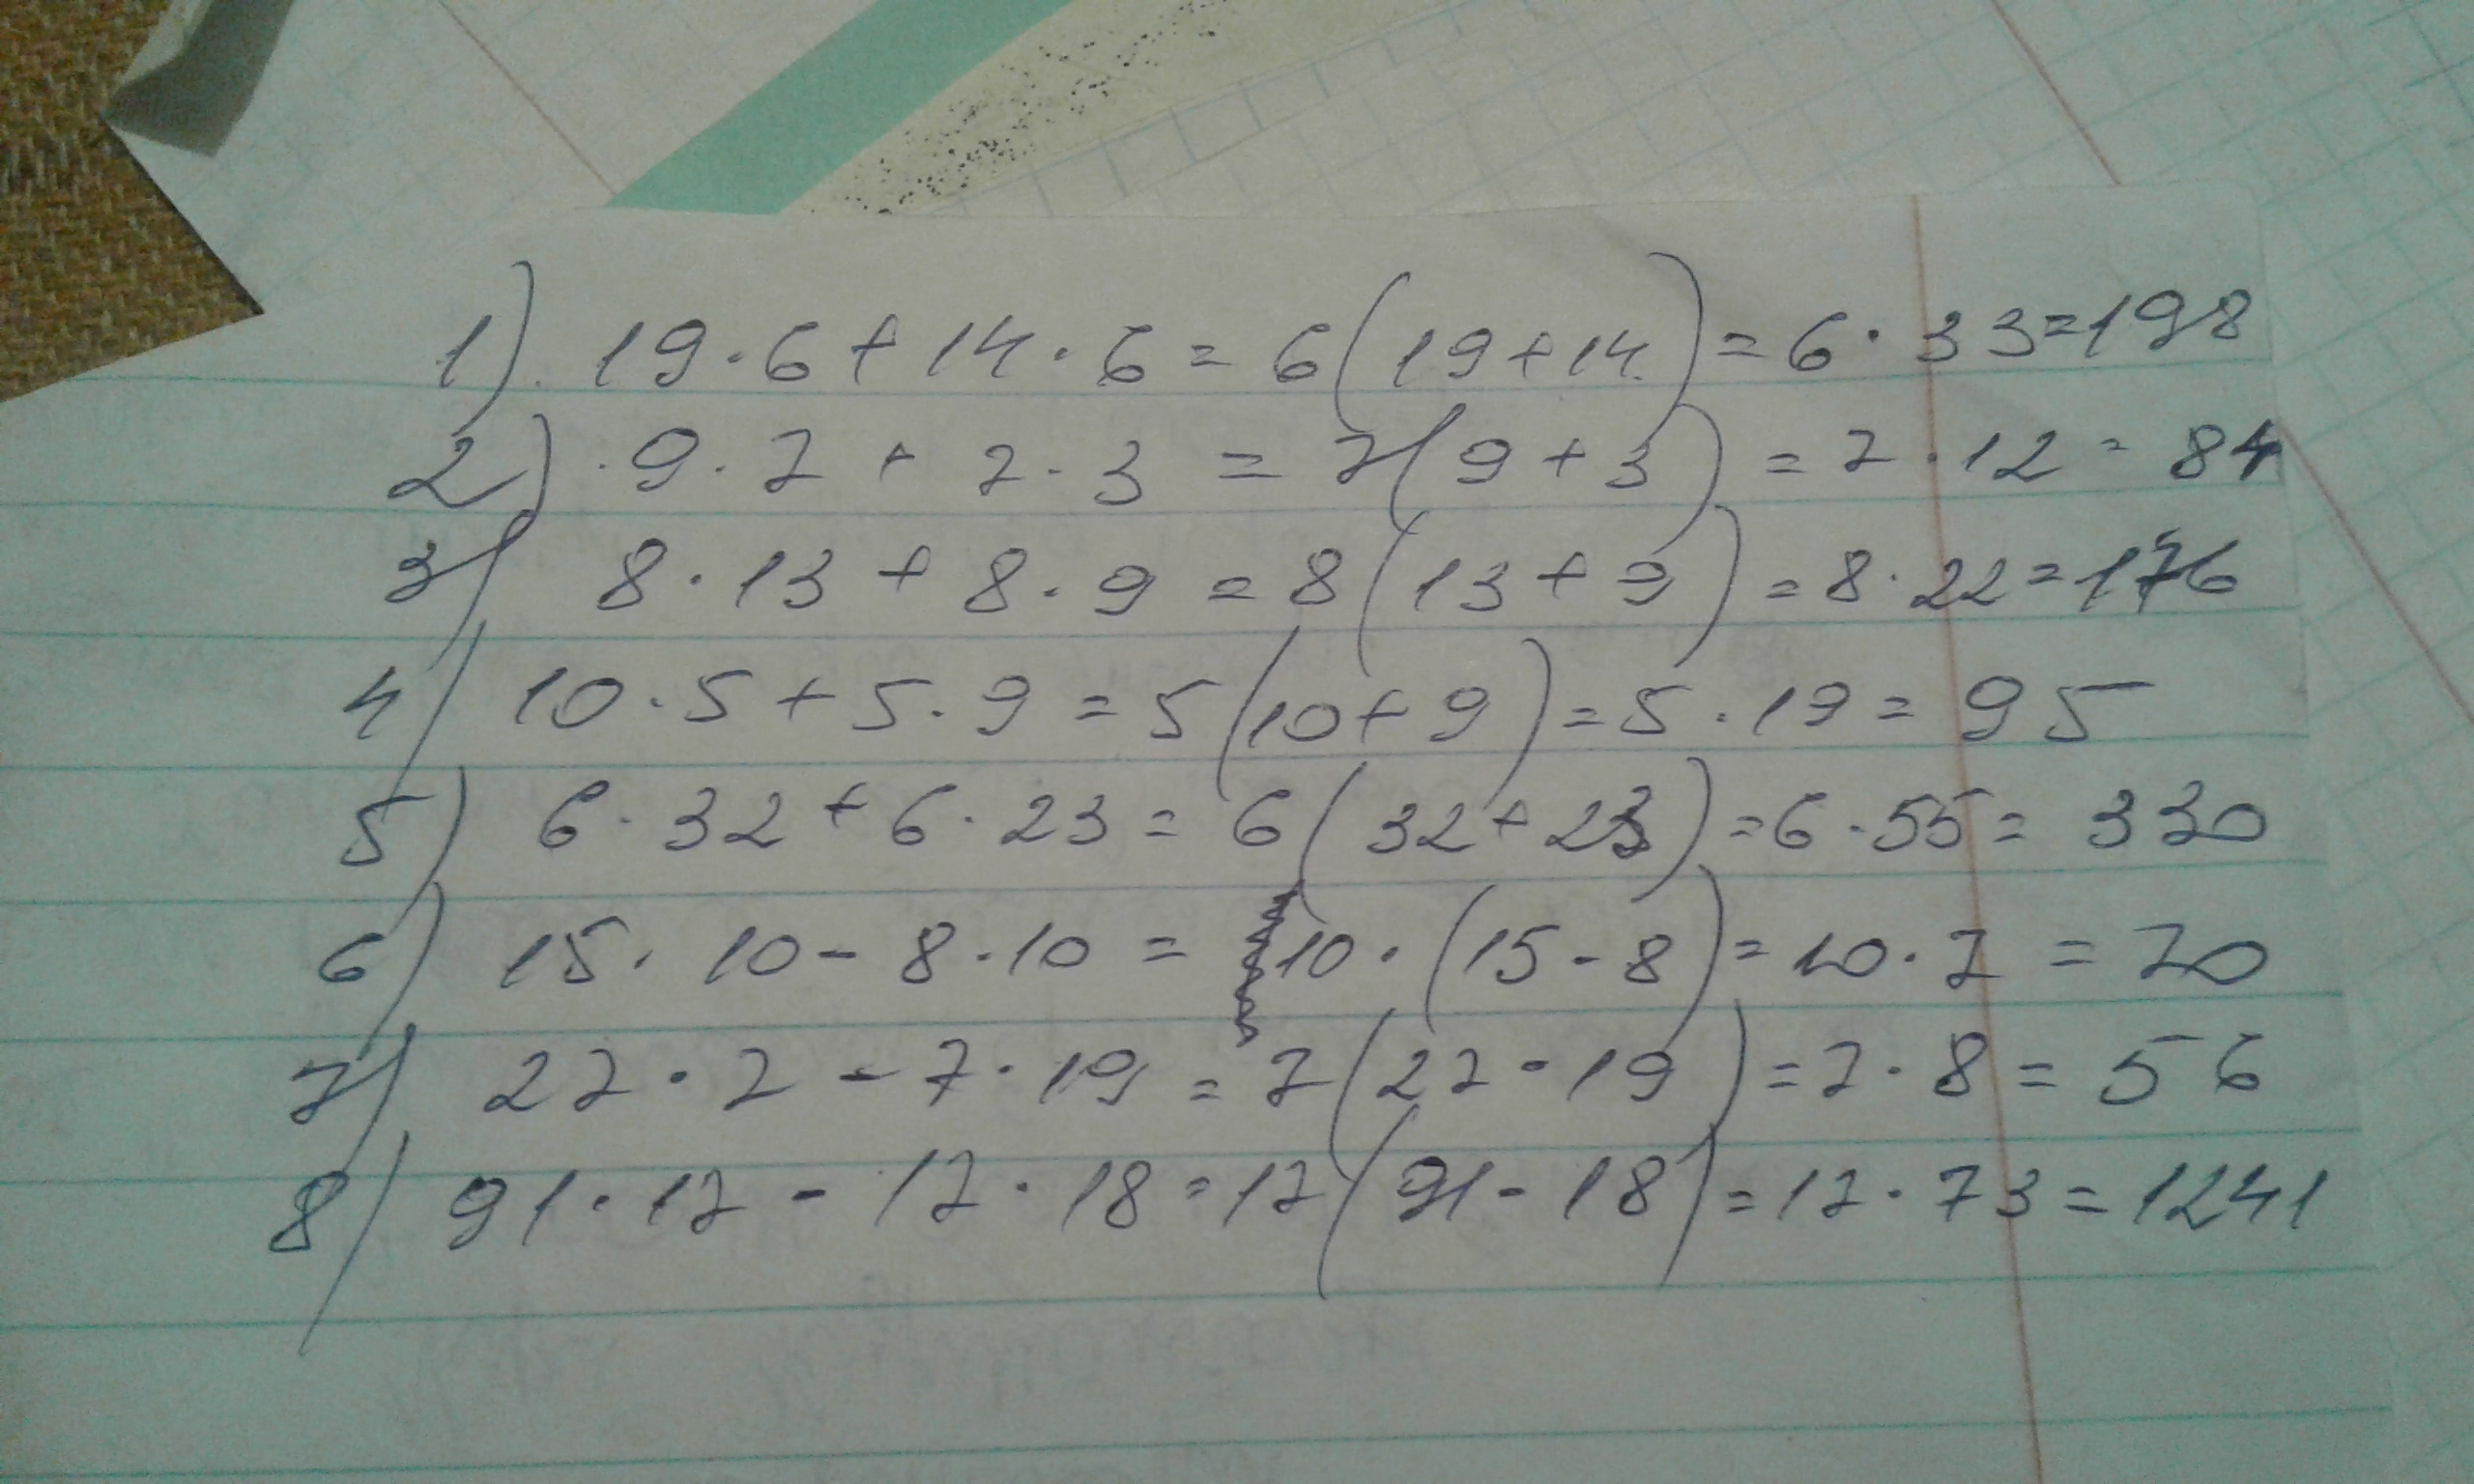 1) 19·6+14·6=6(19+14)=6·33=198
2) 9·7+7·3=7(9+3)=7·12=84
3) 8·13+8·9=8(13+9)=8·22=176
4) 10·5+5·9=5(10+9)=5·19=95
5) 6·32+6·23=6(32+23)=6·55=330
6) 15·10-8·10=10·(15-8)=10·7=70
7) 27·7-7·19=7(27-19)=7·8=56
8) 91·17-17·18=17(91-18)=17·73=1241